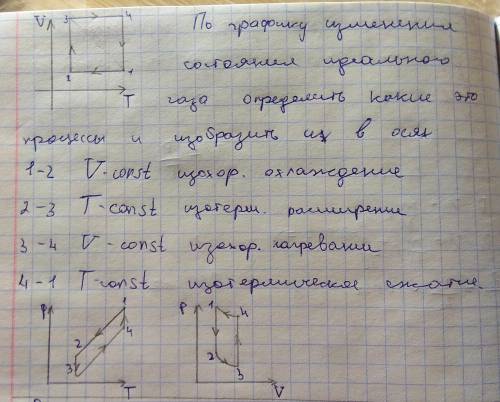 V 3 4 По графику изменения
2 1 состояния идеального
T газа определить какие это
процессы и изобразить их в осях
1-2 V-const изохор. охлаждение
2-3 T-const изотерм. расширение
3-4 V-const изохор. нагревании
4-1 T-const изотермическое сжатие.
P 1 2 3 4 T
P 1 4 2 3 V